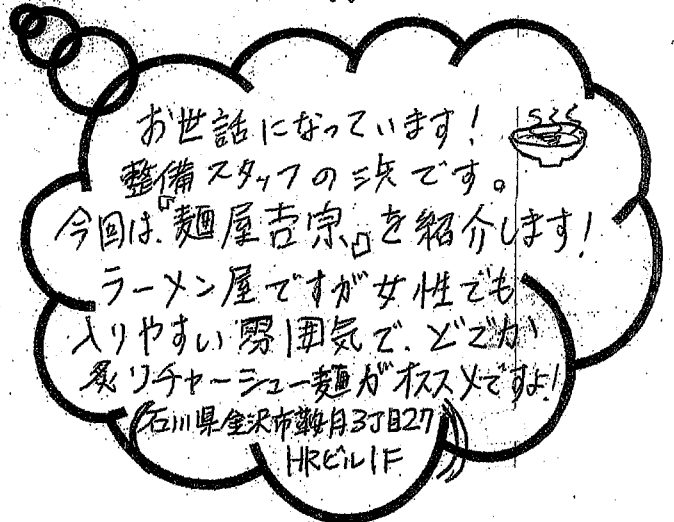 お世話になっています!
整備スタッフの浜です。
今回は、『麺屋吉宗』を紹介します!
ラーメン屋ですが女性でも
入りやすい雰囲気で、どでか
炙りチャーシュー麺がオススメですよ!
(石川県金沢市鞍月3丁目27
HRビル1F)